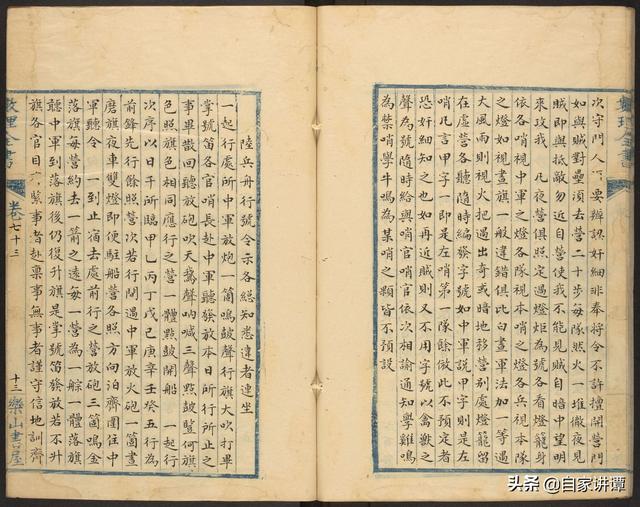 數理全書
次守門人要辦認奸細非奉將令不許擅開營門
如與賊對壘須去營二十步每隊照火一堆徹夜見
賊即與抵敵勿近自營使我不能見賊自暗中望明
來攻我 凡夜營俱照定遇燈炬為號各看燈籠身
依各哨視中軍之燈各隊視本哨之燈各兵視本隊
之燈如視晝旗一般違錯俱比白晝軍法加一等遇
大風雨則視火把遇出奇或暗地移營別處燈籠留
在虛營號令隨時編發字號如中軍說甲字則是左
哨凡言甲字一即是左哨第一隊餘倣此不預定者
恐奸細知之也如再近賊則又不用字號以禽獸之
聲為號隨時給與哨官哨官依次相諭通知學雞鳴
為某哨學牛鳴為某哨之類皆不預設
陸兵舟行號令示各總知悉違者連坐
一起行處所中軍放炮一箇鳴鼓聲行旗大吹打畢
掌號笛各官哨長赴中軍聽發放本日所行所止之
事畢散回聽放炮吹天鵝聲吶喊三聲點鼓豎何旗
色照旗色相同應行之營一體點鼓開船 一起行
次序以日干所臨甲乙丙丁戊己庚辛壬癸五行為
前鋒先行餘照營次若行間遇中軍放火砲一箇晝
磨旗夜車雙燈即便駐船營各照方向泊齊圍住中
軍聽令 一到止宿去處前行之營放砲三箇鳴金
落旗每營約去一箭之遠每一營為一䑸一體落旗
聽中軍到落旗後仍後升旗是掌號笛發放若不升
旗各官目緊事者赴稟事無事者謹守信地訓齊
數理全書
卷七十三
十三
樂山書屋
头条 @自家讲谭